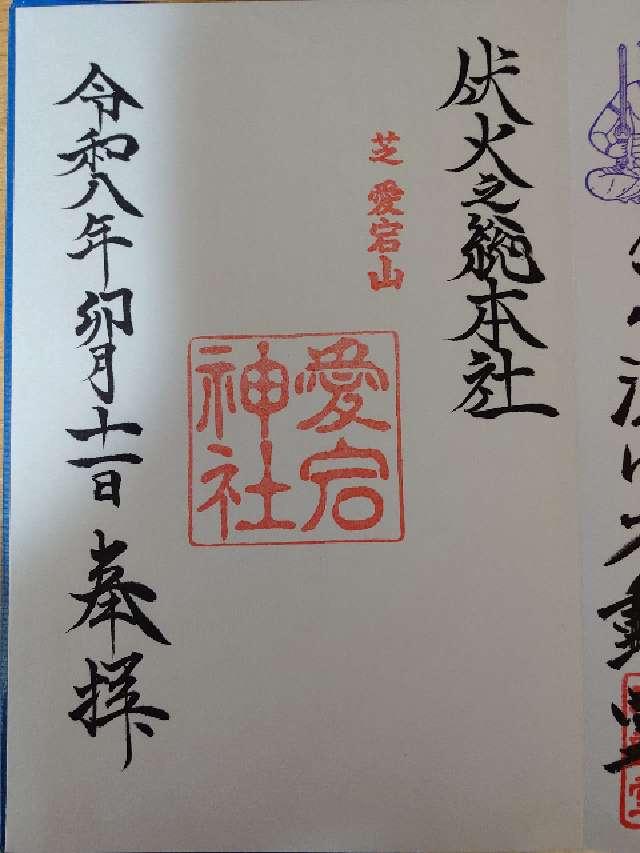 伏火之総本社
芝 愛宕山
愛宕
神社
令和八年卯月十一日 奉拝